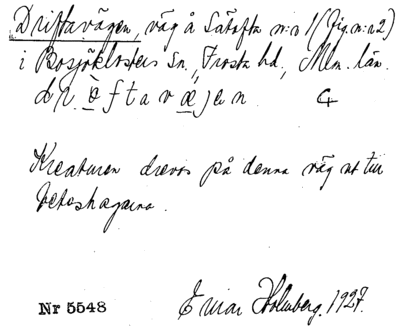 Driftavägen, väg å Sätofta n:o 1 (Fig. n:o 2)
i Bosjöklosters Sn., Frosta hd., Mlm. län.
d r. ò f t a v æ j e n
Kreaturen drevos på denna väg ut till
betoshagarna.
Nr 5548 Einar Holmberg. 1927.